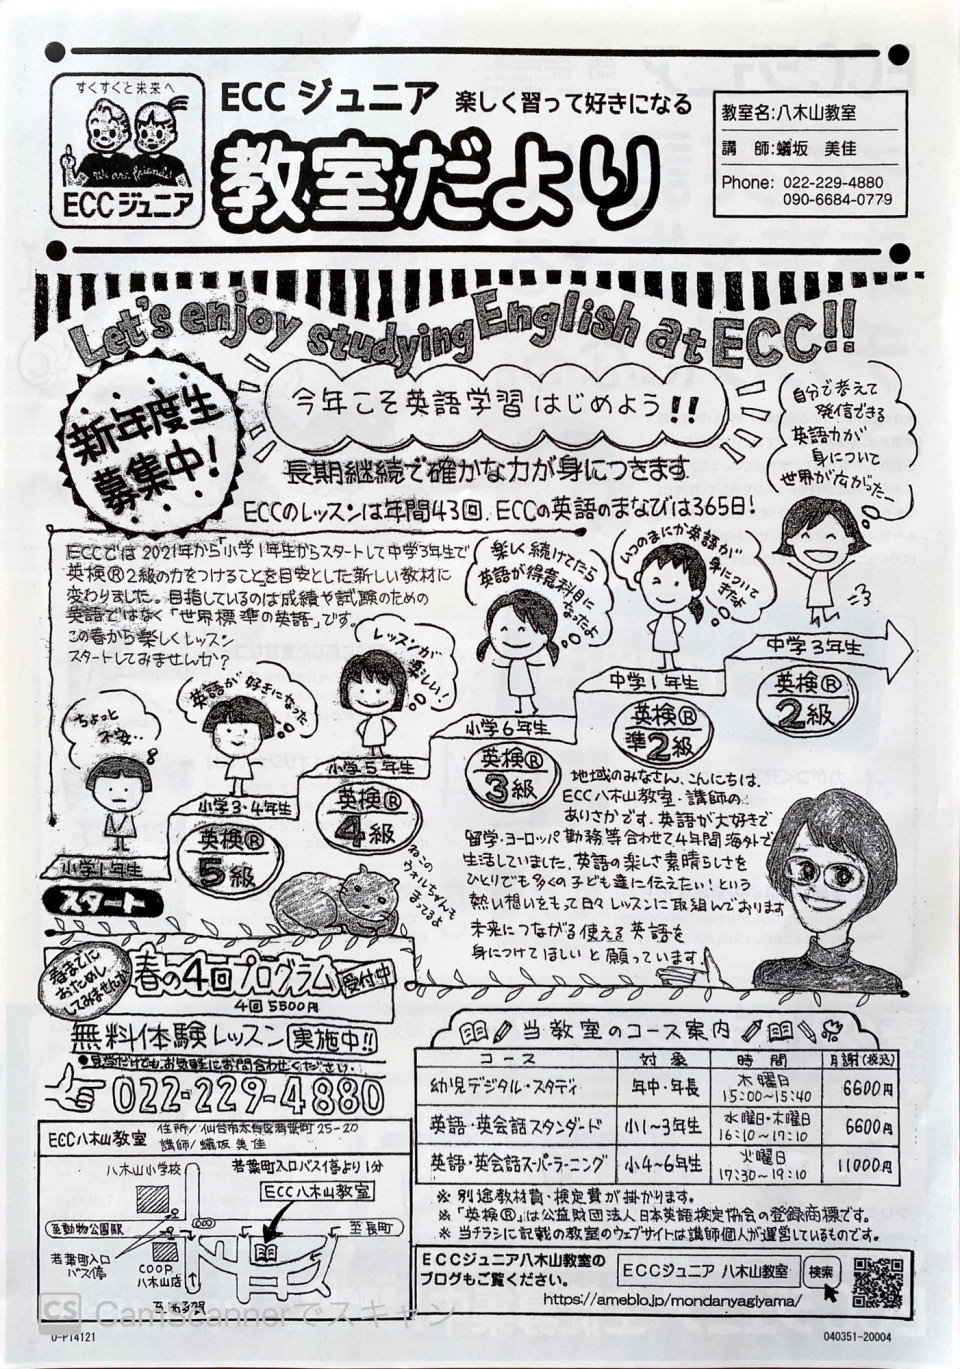 すくすくと未来へ
We are friends!
ECCジュニア
ECC ジュニア 楽しく習って好きになる
教室だより
教室名:八木山教室
講 師:蟻坂 美佳
Phone: 022-229-4880
090-6684-0779
Let's enjoy studying English at ECC!!
新年度生
募集中!
今年こそ英語学習はじめよう!!
長期継続で確かな力が身につきます
ECCのレッスンは年間43回.ECCの英語のまなびは365日!
自分で考えて
発信できる
英語力が
身について
世界が広がったー
ECCでは2021年から「小学1年生からスタートして中学3年生で
英検®2級の力をつけることを目安とした新しい教材に
変わりました。目指しているのは成績や試験のための
英語ではなく「世界標準の英語」です。
この春から楽しくレッスン
スタートしてみませんか?
ちょっと
不安..
英語が好きになった
レッスンが
楽しい!
楽しく続けてたら
英語が得意科目に
なったよ
いつのまにか英語が
身について
きたよ
小学1年生
スタート
小学3・4年生
英検®
5級
小学5年生
英検®
4級
小学6年生
英検®
3級
中学1年生
英検®
準2級
中学3年生
英検®
2級
ねこの
ウォルちゃんも
まってるよ
地域のみなさん、こんにちは。
ECC八木山教室・講師の
ありさかです。英語が大好きで
留学・ヨーロッパ勤務等合わせて4年間海外で
生活していました。英語の楽しさ素晴らしさを
ひとりでも多くの子ども達に伝えたい!という
熱い想いをもって日々レッスンに取組んでおります
未来につながる使える英語を
身につけてほしいと願っています
春までに
おためし
してみませんか
春の4回プログラム 受付中
4回 5500円
無料体験レッスン 実施中!!
●見学だけでもお気軽にお問合わせください.
022-229-4880
ECC八木山教室
住所/仙台市太白区若葉町25-20
講師/蟻坂美佳
八木山小学校
若葉町入口バス停より1分
ECC八木山教室
至動物公園駅
至長町
若葉町入口
バス停
COOP
八木山店
当教室のコース案内
コース 対象 時間 月謝(税込)
幼児デジタル・スタディ 年中・年長 木曜日 15:00~15:40 6600円
英語・英会話スタンダード 小1~3年生 水曜日・木曜日 16:10~17:10 6600円
英語・英会話スーパーラーニング 小4~6年生 火曜日 17:30~19:10 11000円
※ 別途教材費・検定費が掛かります。
※「英検®」は公益財団法人日本英語検定協会の登録商標です。
※ 当チラシに記載の教室のウェブサイトは講師個人が運営しているものです。
ECCジュニア八木山教室の
ブログもご覧ください。
ECCジュニア 八木山教室 検索
https://ameblo.jp/mondaryagiyama/
CS CamScannerでスキャン
0-P14121
040351-20004